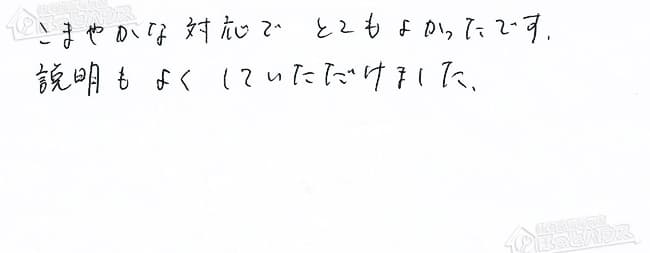 こまやかな対応で とてもよかったです.
説明も よく していただけました.